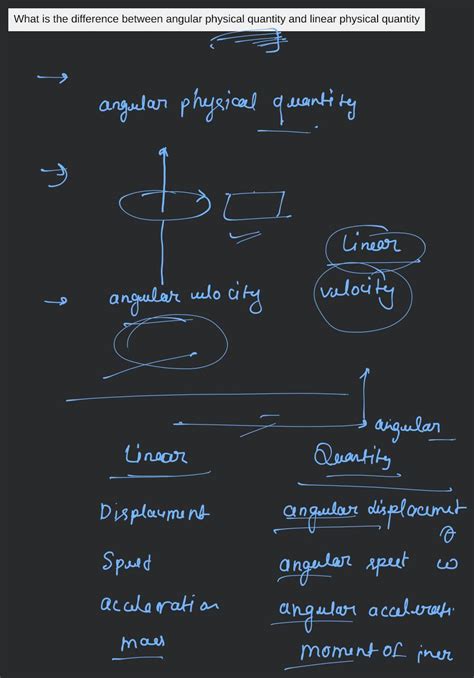 What is the difference between angular physical quantity and linear physical quantity
angular physical quantity
Linear
angular velocity
velocity
angular
Linear Quantity
Displacement angular displacement
θ
Speed angular speed ω
acceleration angular accelerati
mass moment of iner